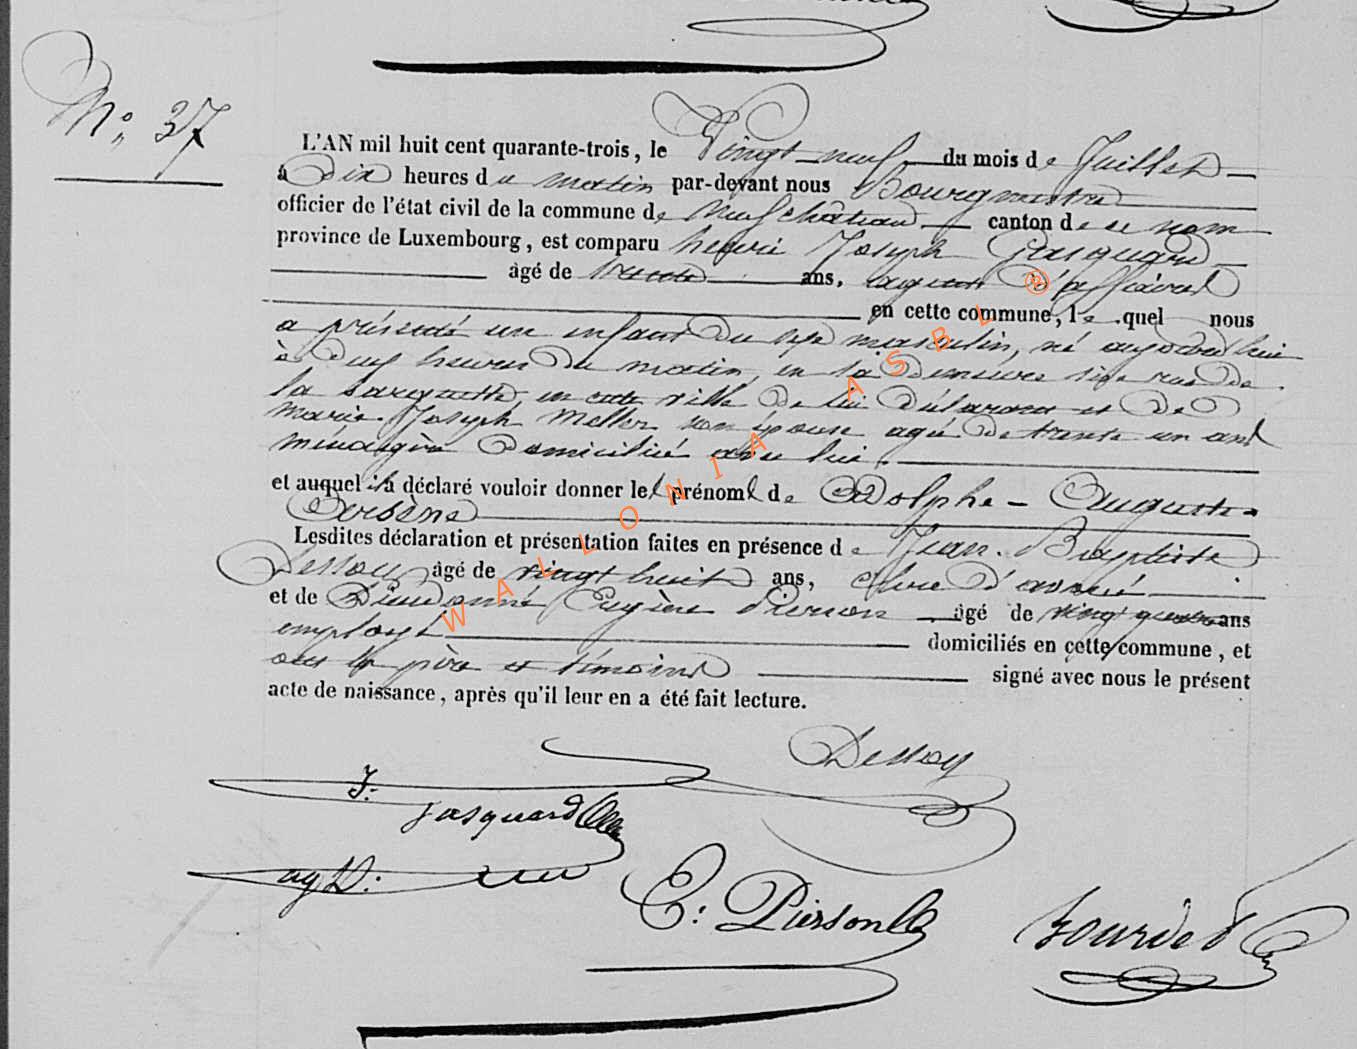 N° 37
L'AN mil huit cent quarante-trois, le Vingt-neuf du mois de Juillet
à Dix heures du matin par-devant nous Bourgmestre
officier de l'état civil de la commune de Neufchâteau canton de ce nom
province de Luxembourg, est comparu henri Joseph Jasquard
âgé de trente ans, agent d'affaires
en cette commune, lequel nous
a présenté un enfant du sexe masculin, né aujourd'hui
à deux heures du matin, en sa demeure sise rue de
la en cette ville de lui déclarant et de
Marie Joseph Meller son épouse agée de trente un ans
ménagère domiciliée avec lui.
et auquel il a déclaré vouloir donner les prénoms de Adolphe - Auguste -
Arsène
Lesdites déclaration et présentation faites en présence de Jean-Baptiste
Dessoy âgé de vingt huit ans, clerc d'avoué
et de Dieudonné Eugène Pierson âgé de vingt quatre ans
employé domiciliés en cette commune, et
ont le père et témoins signé avec nous le présent
acte de naissance, après qu'il leur en a été fait lecture.
Dessoy
J: Jasquard
ag D:
E: Pierson
Bourde
WALLONIA ASBL ®